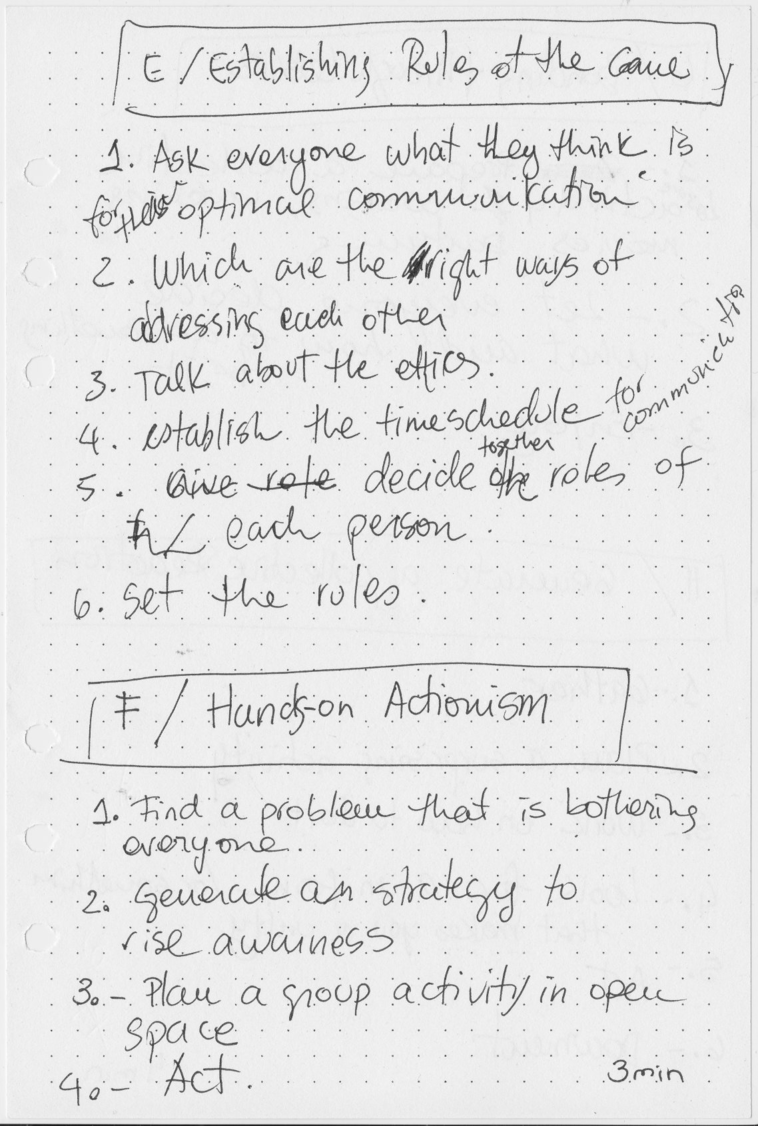 E / Establishing Rules of the Game
1. Ask everyone what they think is
for their optimal communication
2. Which are the right ways of
addressing each other
3. Talk about the ethics.
4. establish the timeschedule for communication
together
5. Give role decide the roles of
each person.
6. set the rules.
F / Hands-on Actionism
1. Find a problem that is bothering
everyone.
2. generate an strategy to
rise awarness
3.- Plan a group activity in open
space
4.- Act.
3min